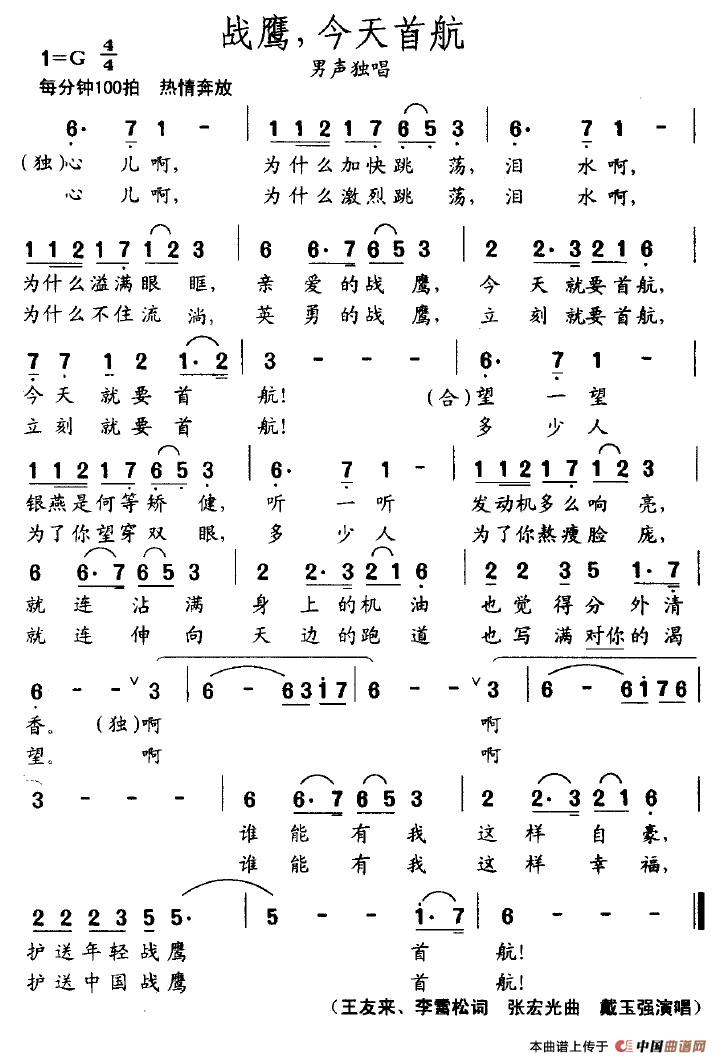 战鹰，今天首航
1=G 4/4
男声独唱
每分钟100拍 热情奔放
6· 7 1 - | 1 1 2 1 7 6 5 3 | 6· 7 1 - |
（独）心 儿 啊， 为什么加快跳 荡，泪 水啊，
心 儿 啊， 为什么激烈跳 荡，泪 水啊，
1 1 2 1 7 1 2 3 | 6 6· 7 6 5 3 | 2 2· 3 2 1 6 |
为什么溢满眼 眶， 亲 爱的战 鹰， 今 天就要首航，
为什么不住流 淌， 英 勇的战 鹰， 立 刻就要首航，
7 7 1 2 1· 2 | 3 - - - | 6· 7 1 - |
今天 就要首 航！ （合）望 一望
立刻 就要首 航！ 多 少人
1 1 2 1 7 6 5 3 | 6· 7 1 - | 1 1 2 1 7 1 2 3 |
银燕是何等矫 健， 听 一听 发动机多么响 亮，
为了你望穿双 眼， 多 少人 为了你熬瘦脸 庞，
6 6· 7 6 5 3 | 2 2· 3 2 1 6 | 2 2 3 5 1· 7 |
就 连 沾 满 身 上的机 油 也觉得分外清
就 连 伸 向 天 边的跑 道 也写满对你的渴
6 - - ∨ 3 | 6 - - 6 3 1 7 | 6 - - ∨ 3 | 6 - - 6 1 7 6 |
香。 （独）啊 啊
望。 啊 啊
3 - - - | 6 6· 7 6 5 3 | 2 2· 3 2 1 6 |
谁 能 有 我 这 样 自 豪，
谁 能 有 我 这 样 幸 福，
2 2 2 3 5 5· | 5 - - 1· 7 | 6 - - - ‖
护送年轻战鹰 首 航！
护送中国战鹰 首 航！
（王友来、李雷松词 张宏光曲 戴玉强演唱）
本曲谱上传于 中国曲谱网